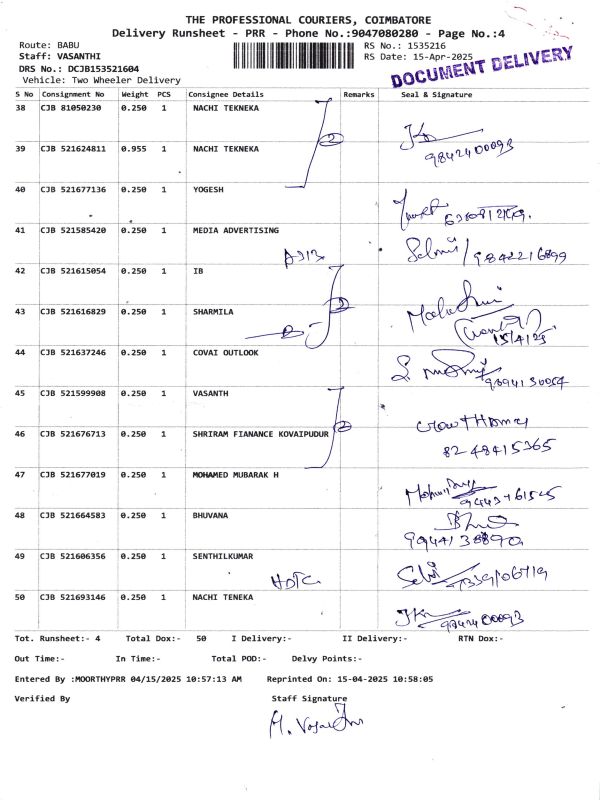 THE PROFESSIONAL COURIERS, COIMBATORE
Delivery Runsheet - PRR - Phone No.:9047080280 - Page No.:4
Route: BABU
RS No.: 1535216
Staff: VASANTHI
RS Date: 15-Apr-2025
DRS No.: DCJB153521604
Vehicle: Two Wheeler Delivery
DOCUMENT DELIVERY
S No Consignment No Weight PCS Consignee Details Remarks Seal & Signature
38 CJB 81050230 0.250 1 NACHI TEKNEKA
2
39 CJB 521624811 0.955 1 NACHI TEKNEKA
9842400093
40 CJB 521677136 0.250 1 YOGESH
41 CJB 521585420 0.250 1 MEDIA ADVERTISING
9842216899
42 CJB 521615054 0.250 1 IB
43 CJB 521616829 0.250 1 SHARMILA
2
15/4/25
44 CJB 521637246 0.250 1 COVAI OUTLOOK
45 CJB 521599908 0.250 1 VASANTH
46 CJB 521676713 0.250 1 SHRIRAM FIANANCE KOVAIPUDUR
2
8248415365
47 CJB 521677019 0.250 1 MOHAMED MUBARAK H
48 CJB 521664583 0.250 1 BHUVANA
49 CJB 521606356 0.250 1 SENTHILKUMAR
HDFC
50 CJB 521693146 0.250 1 NACHI TENEKA
9842400093
Tot. Runsheet:- 4 Total Dox:- 50 I Delivery:- II Delivery:- RTN Dox:-
Out Time:- In Time:- Total POD:- Delvy Points:-
Entered By :MOORTHYPRR 04/15/2025 10:57:13 AM Reprinted On: 15-04-2025 10:58:05
Verified By Staff Signature